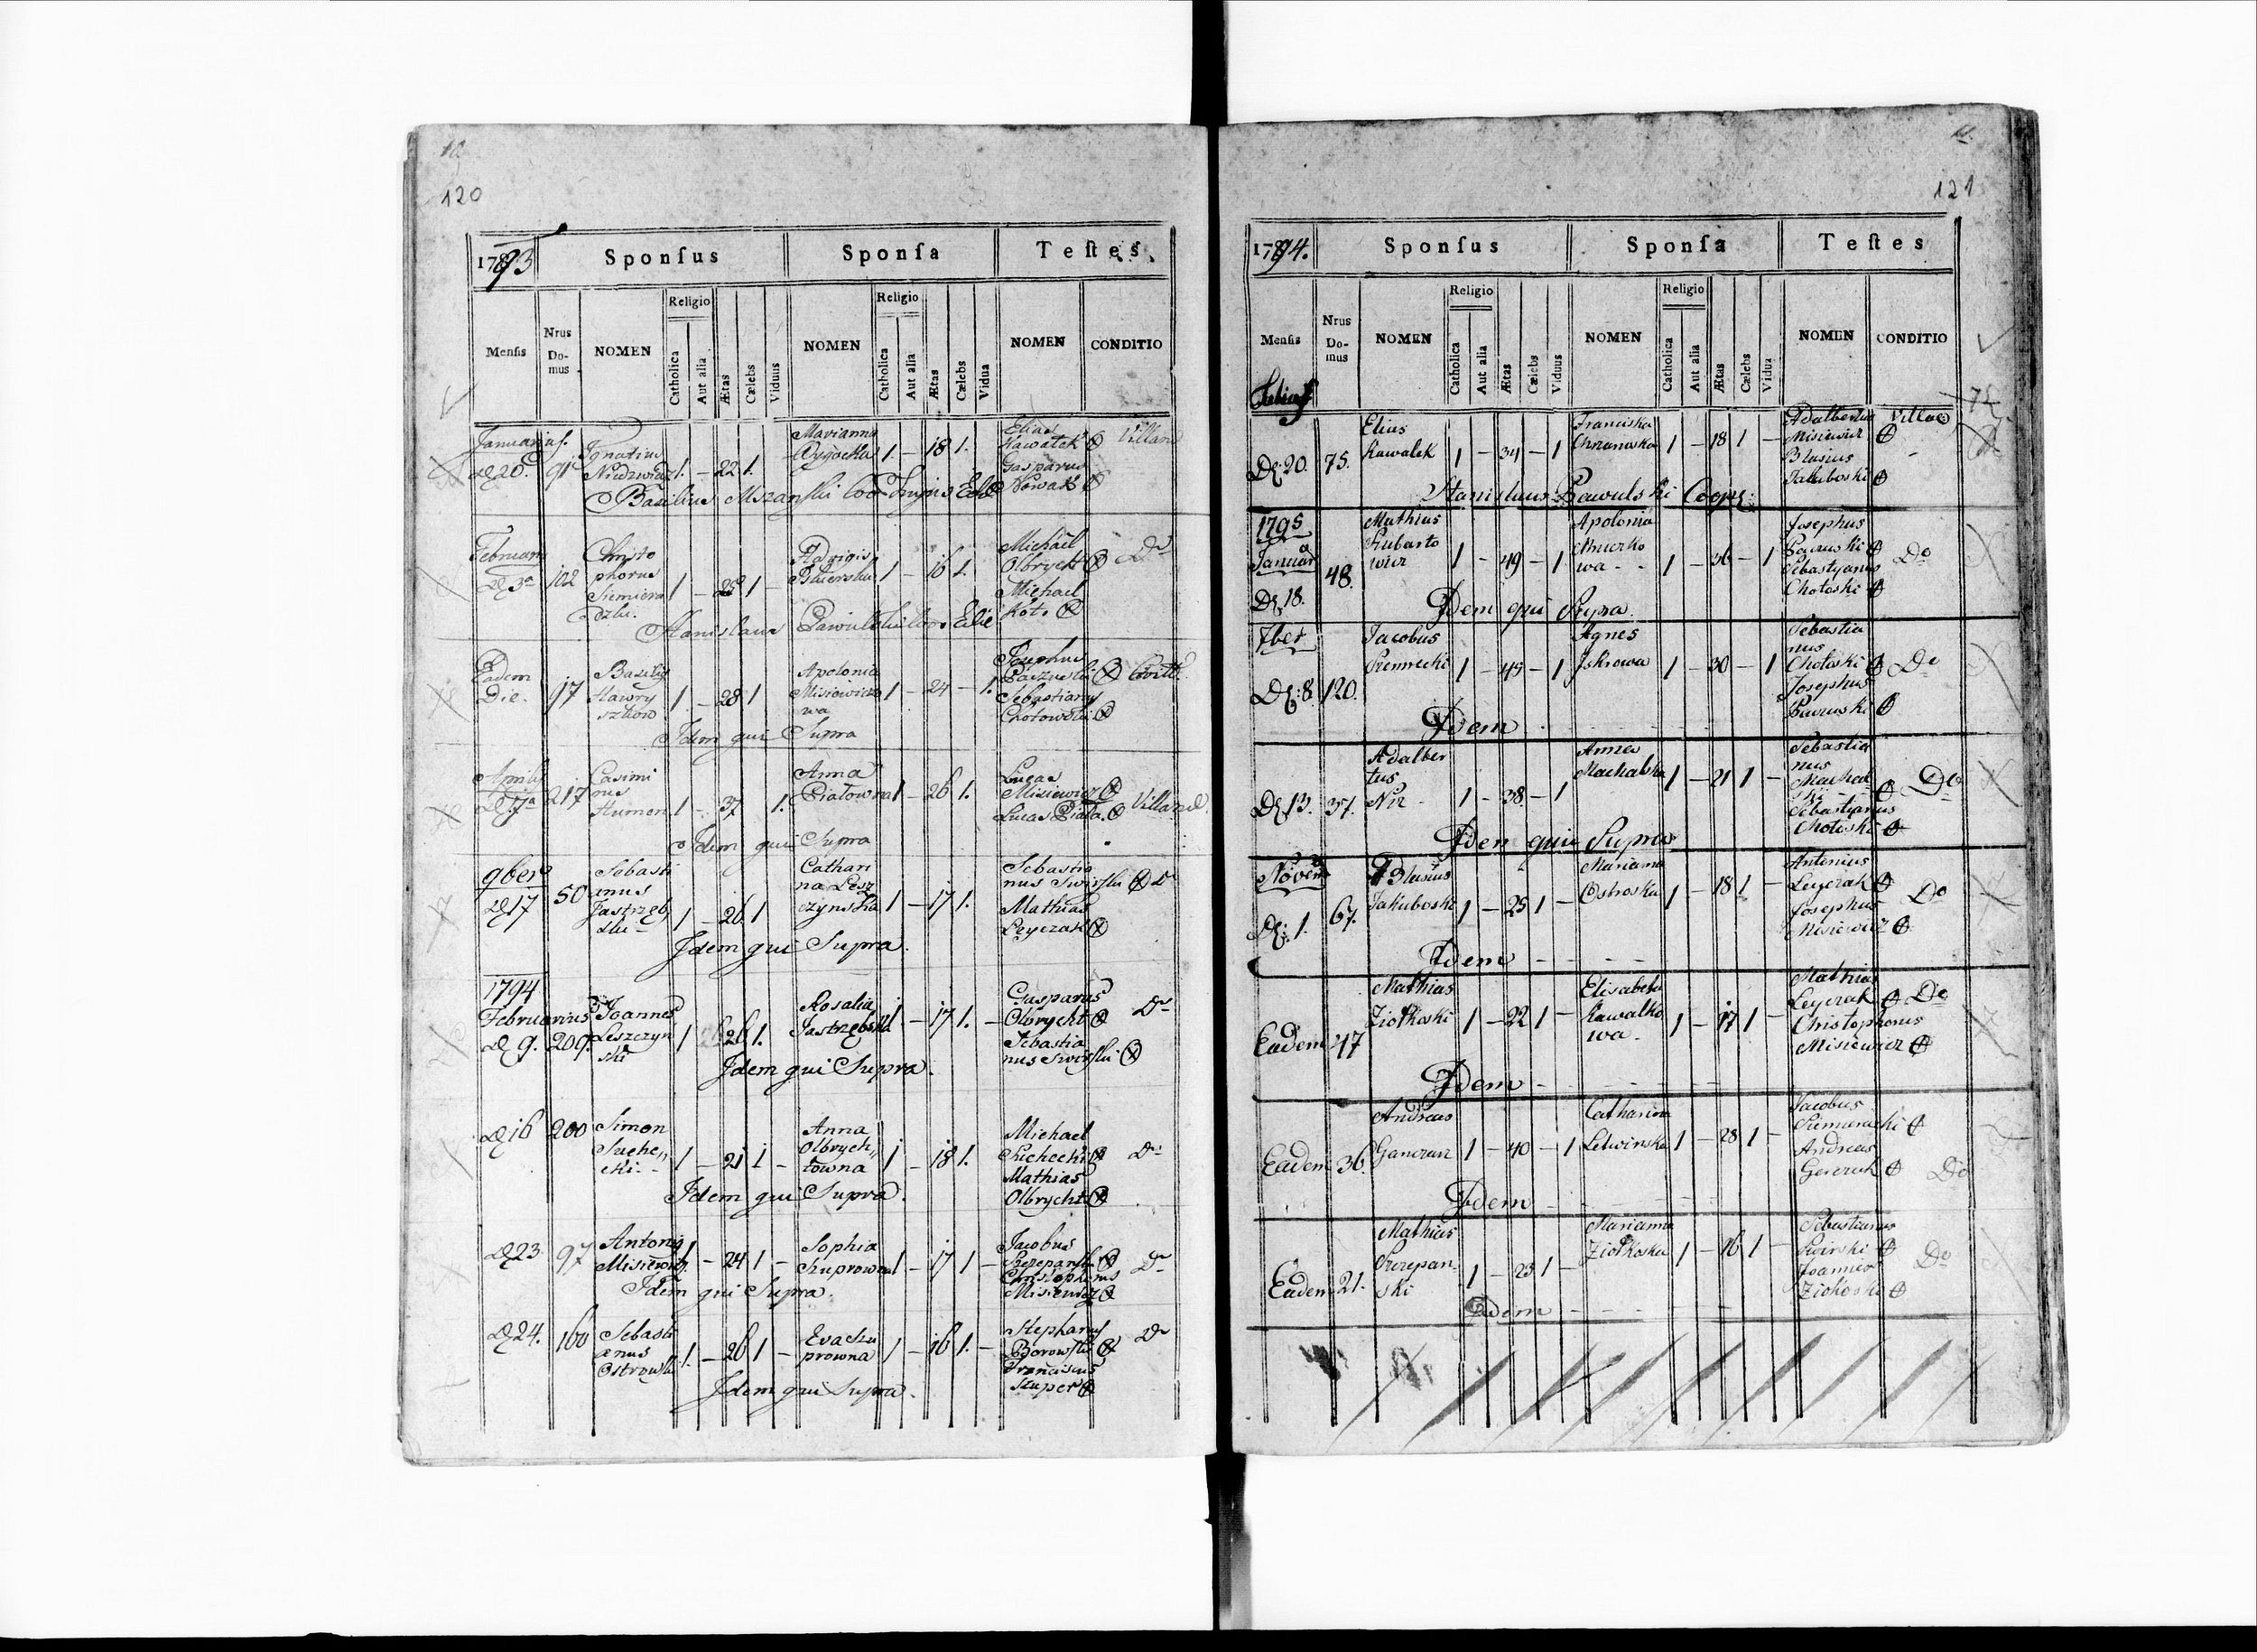 10
120
1793 Sponsus Sponsa Testes
Mensis Nrus Domus NOMEN Religio Catholica Aut alia Ætas Cælebs Viduus NOMEN Religio Catholica Aut alia Ætas Cælebs Vidua NOMEN CONDITIO
Januarius
D 20 91 Ignatius 1. – 22 1. Marianna 1 – 18 1. Elias Kawałek Villani
Gasparus Nowak
Basilius
Februarii
D 3a 102 Christo
phorus 1 – 28 1 – 16 1. Michael Olbrycht Do
Michael Kot
Stanislaus
Eadem
Die. 97 Basily
Hawry
szkow 1 – 28 1 Apolonia
Misiewiczo
wa 1 – 24 – 1. Josephus
Sebastiany
Chotowski
Idem qui Supra
Aprilis
D 7a 217 Casimi
rus
Humen 1 – 37 1. Anna
Piatowna 1 – 26 1. Lucas
Misiewicz
Lucas Piata
Idem qui Supra
9ber
D 17 50 Sebasti
anus
Jastrzęb
ski 1 – 26 1 Cathari
na Lesz
czynska 1 – 17 1. Sebastia
nus Swirski Do
Mathias
Leyczak
Idem qui Supra.
1794
Februarius
D 9. 209. Joannes
Leszczyn
ski 1 26 1. Rosalia
Jastrzębska 1 – 17 1. – Gasparus
Olbrycht Do
Sebastia
nus Swirski
Idem qui Supra.
D 16 200 Simon
Suche,,
cki 1 – 21 1 – Anna
Olbrych,,
towna 1 – 18 1. Michael
Suchecki Do
Mathias
Olbrycht
Idem qui Supra.
D 23 97 Antony
Misiewicz 1 – 24 1 – Sophia
Szuprowna 1 – 17 1 – Jacobus
Szczepanski Do
Christophorus
Misiewicz
Idem qui Supra.
D 24. 160 Sebasti
anus
Ostrowski 1. – 26 1 – Eva Szu
prowna 1 – 16 1. – Stephany
Borowski Do
Franciscus
Szuper
Idem qui Supra.
11.
121
1794. Sponsus Sponsa Testes
Mensis Nrus Domus NOMEN Religio Catholica Aut alia Ætas Cælebs Viduus NOMEN Religio Catholica Aut alia Ætas Cælebs Vidua NOMEN CONDITIO
Julius
D: 20. 75. Elias
Kawałek 1 – 34 – 1 Franciska
Chrzanowska 1 – 18 1 – Adalbertus
Misiewicz
Blasius
Jakuboski
Stanislaus Pawulski Coopr:
1795
Januar
D 18. 48. Mathias
Skubarto
wicz 1 – 49 – 1 Apolonia 1 – 36 – 1 Josephus
Sebastyanus
Chotoski Do
Idem qui Supra.
7ber
D: 8. 120. Jacobus 1 – 45 – 1 Agnes
Iskrowa 1 – 30 – 1 Sebastia
nus
Chotoski Do
Josephus
Idem
D 13. 37. Adalber
tus 1 – 38 – 1 Anna
Machalska 1 – 21 1 – Sebastia
nus
Machal
ski Do
Sebastyanus
Chotoski
Idem qui Supra
Novem
D: 1. 67. Blasius
Jakuboski 1 – 25 1 – Marianna
Ostroska 1 – 18 1 – Antonius
Leyczak Do
Josephus
Misiewicz
Idem
Eadem 47 Mathias
Ziołkoski 1 – 22 1 – Elisabeta
Kawałko
wa 1 – 17 1 – Mathias
Leyczak Do
Christophorus
Misiewicz
Idem
Eadem 36. Andreas
Gancarz 1 – 40 – 1 Catharina
Letwinska 1 – 28 1 – Jacobus
Andreas Do
Idem
Eadem 21. Mathias
Szczepan-
ski 1 – 23 1 – Marianna
Ziołkoska 1 – 16 1 – Sebastianus
Swirski
Joannes
Ziołkoski Do
Idem